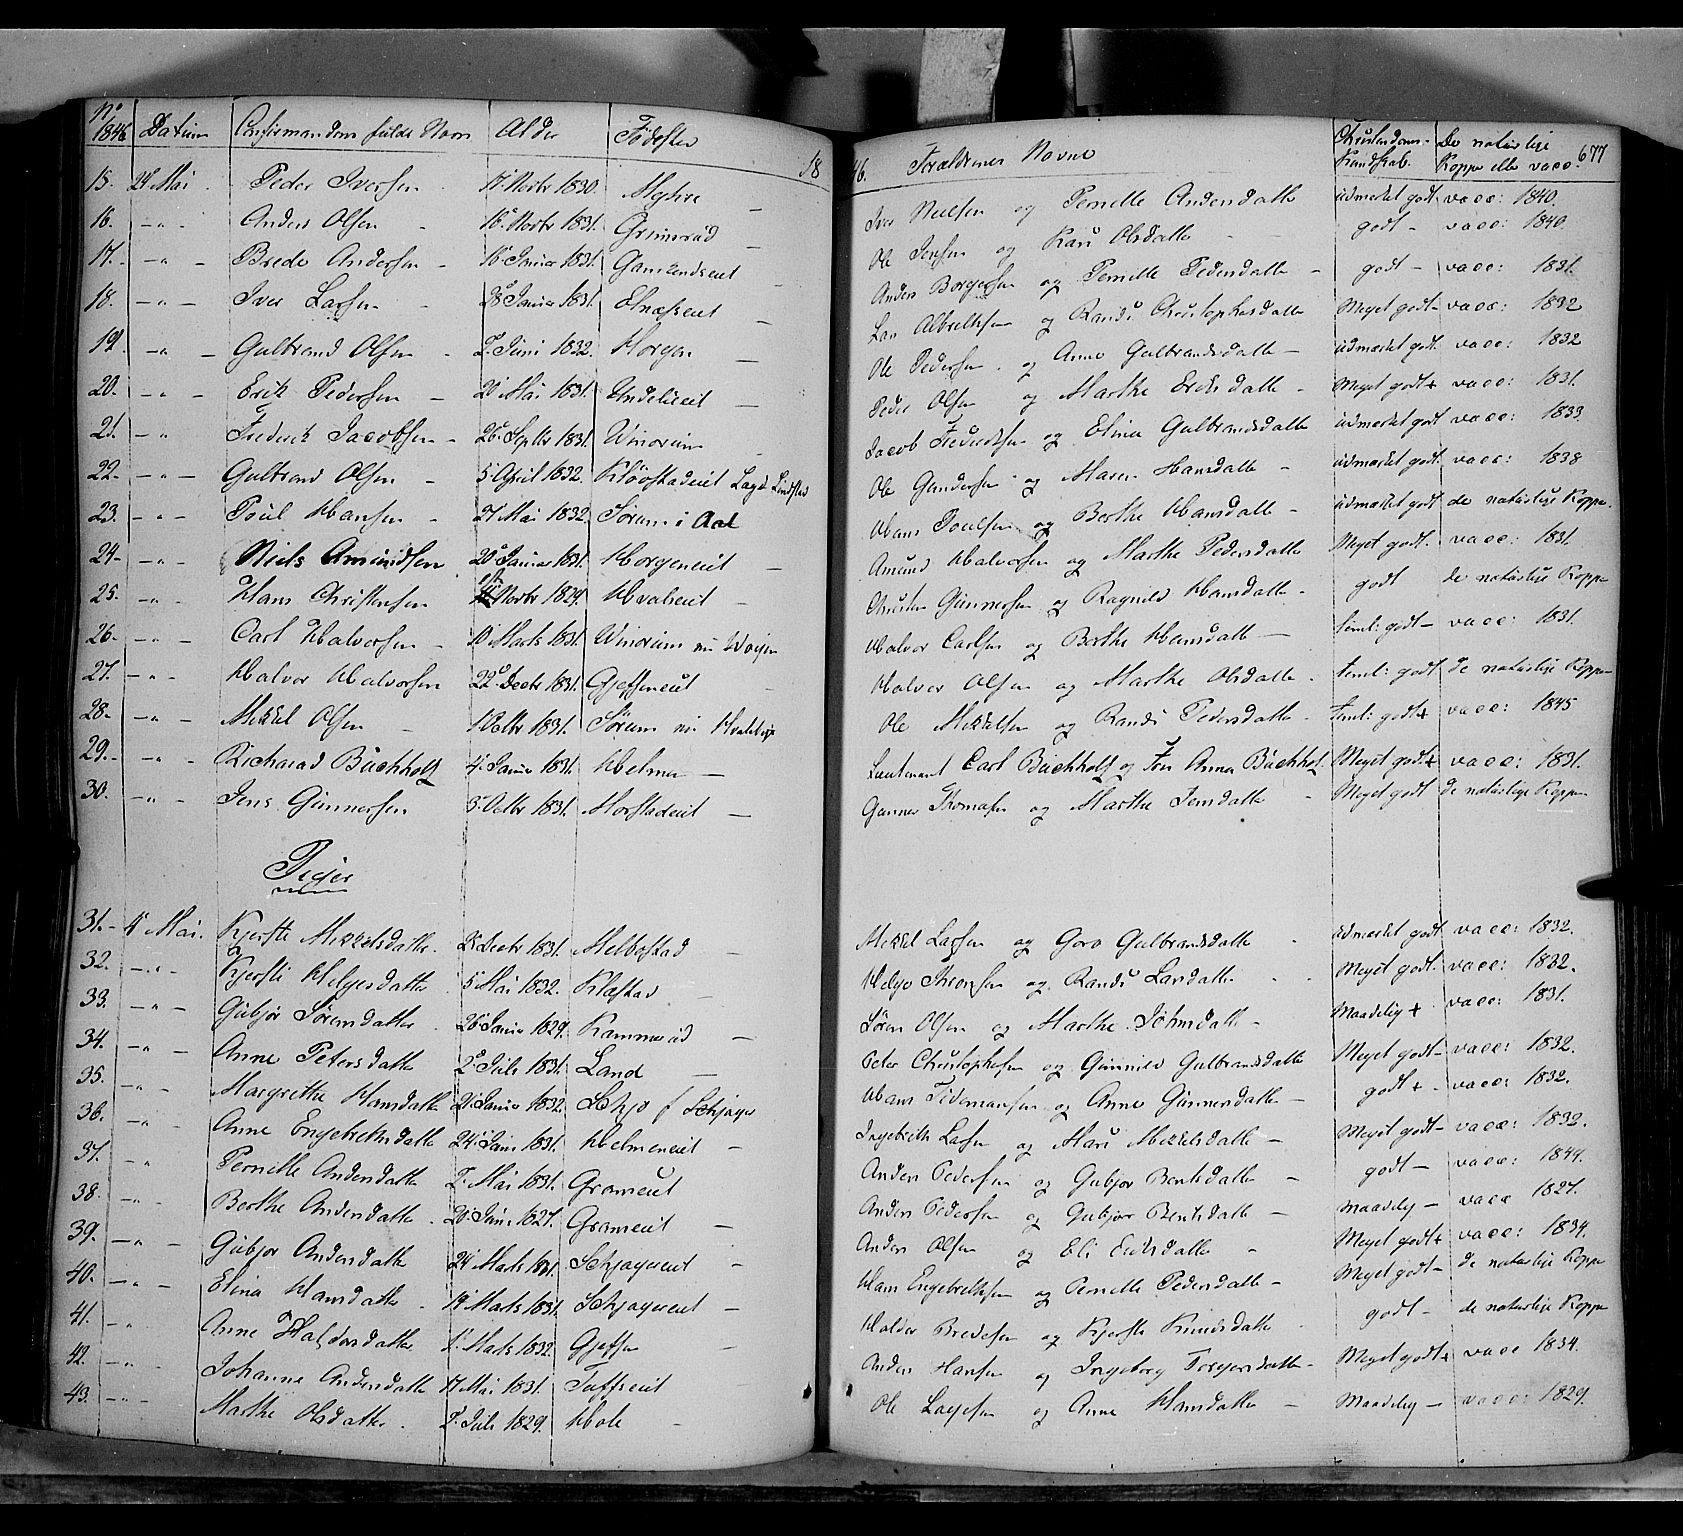 No 1846 Datum Confirmandens fulde Navn Alder Fødested 18
15. 24 Mai Peder Iversen 17. Novbr 1830. Myhre
16. Anders Olsen 16 Novbr 1831. Grimsrud
17. Brede Andersen 16 Januar 1831. Gamkindseiet
18. Iver Larsen 28 Januar 1831. Elnæseiet
19. Gulbrand Olsen 2. Juni 1832. Horgen
20. Erik Pedersen 20 Mai 1831. Undelieiet
21. Frederik Jacobsen 26 Septbr 1831. Windrum
22. Gulbrand Olsen 5 April 1832. Kløvstadeiet
23. Poul Hansen 27 Mai 1832. Sørum i Aal
24. Niels Amundsen 20 Januar 1831. Horgeneiet
25. Hans Christensen Novbr 1829. Hvalseiet
26. Carl Halvorsen 10 Marts 1831. Windrum nu
27. Halvor Halvorsen 22 Decbr 1831. Gjefseneiet
28. Mikkel Olsen 1 Octbr 1831. Sørum nu
29. Richard Buchholtz 4. Januar 1831. Helmen
30. Jens Gunnersen 5. Octbr 1831. Morstadeiet
Piger
31. 4 Mai. Kjersti Mikkelsdatter 25 Decbr 1831. Melbostad
32. Kjersti Helgesdatter 5 Mai 1832. Klæstad
33. Gubjør Sørensdatter 26 Januar 1829. Kammerud
34. Anne Petersdatter 2 Juli 1831. Land
35. Margrethe Hansdatter 21 Januar 1832.
36. Anne Engebrethsdatter 24 Juni 1831. Helmeneiet
37. Pernille Andersdatter 2. Mai 1831. Grameiet
38. Berthe Andersdatter 20 Juni 1827. Grameiet
39. Gubjør Andersdatter 24 Marts 1831. Schjagereiet
40. Elina Hansdatter 19 Marts 1831. Schjagereiet
41. Anne Haldorsdatter 1 Marts 1832. Gjefsen
42. Johanne Andersdatter 17 Mai 1831.
43. Marthe Olsdatter 2. Juli 1829. Hole
46. Forældrenes Navne Christendoms-Kundskab. De naturlige Kopper eller vacc. 677
Iver Nielsen og Pernille Andersdatter udmærket godt vacc: 1840.
Ole Jensen og Kari Olsdatter godt vacc: 1840.
Anders Borgersen og Pernille Pedersdatter godt vacc: 1831.
Lars Albrethsen og Randi Christophersdatter Meget godt vacc: 1832
Ole Pedersen og Anne Gulbrandsdatter udmærket godt vacc: 1832
Peder Olsen og Marthe Eriksdatter Meget godt + vacc: 1831.
Jacob Fredriksen og Elina Gulbrandsdatter udmærket godt vacc: 1833
Ole Gundersen og Maren Hansdatter udmærket godt vacc: 1838
Hans Poulsen og Berthe Hansdatter udmærket godt de naturlige Kopper.
Amund Halvorsen og Marthe Pedersdatter Meget godt vacc: 1831.
Christen Gunnersen og Ragnild Hansdatter godt de naturlige Kopper
Halvor Carlsen og Berthe Hansdatter teml: godt vacc: 1831.
Halvor Olsen og Marthe Olsdatter temli: godt de naturlige Kopper
Ole Mikkelsen og Randi Pedersdatter temli: godt + vacc: 1845
Lieutenant Carl Buchholtz og Fru Anna Buchholtz Meget godt + vacc: 1831.
Gunner Thomasen og Marthe Jensdatter Meget godt de naturlige Kopper
Mikkel Larsen og Goro Gulbrandsdatter udmærket godt vacc: 1832.
Helge Thronsen og Randi Larsdatter Meget godt vacc: 1832.
Søren Olsen og Marthe Johnsdatter Maadelig + vacc: 1831.
Peter Christophersen og Gunnild Gulbrandsdatter Meget godt vacc: 1832.
Hans Tidemansen og Anne Gunnersdatter godt + vacc: 1832.
Ingebrith Larsen og Mari Mikkelsdatter Meget godt vacc: 1832.
Anders Pedersen og Gubjør Bentsdatter godt vacc: 1844.
Anders Pedersen og Gubjør Bentsdatter maadelig vacc 1827.
Anders Olsen og Eli Eriksdatter Meget godt + vacc: 1834.
Hans Engebrethsen og Pernille Pedersdatter Meget godt de naturlige Kopper
Haldor Bredesen og Kjersti Knudsdatter godt de naturlige Kopper
Anders Hansen og Ingeborg Torgersdatter Meget godt + vacc 1834.
Ole Lagesen og Anne Hansdatter Maadelig vacc: 1829.